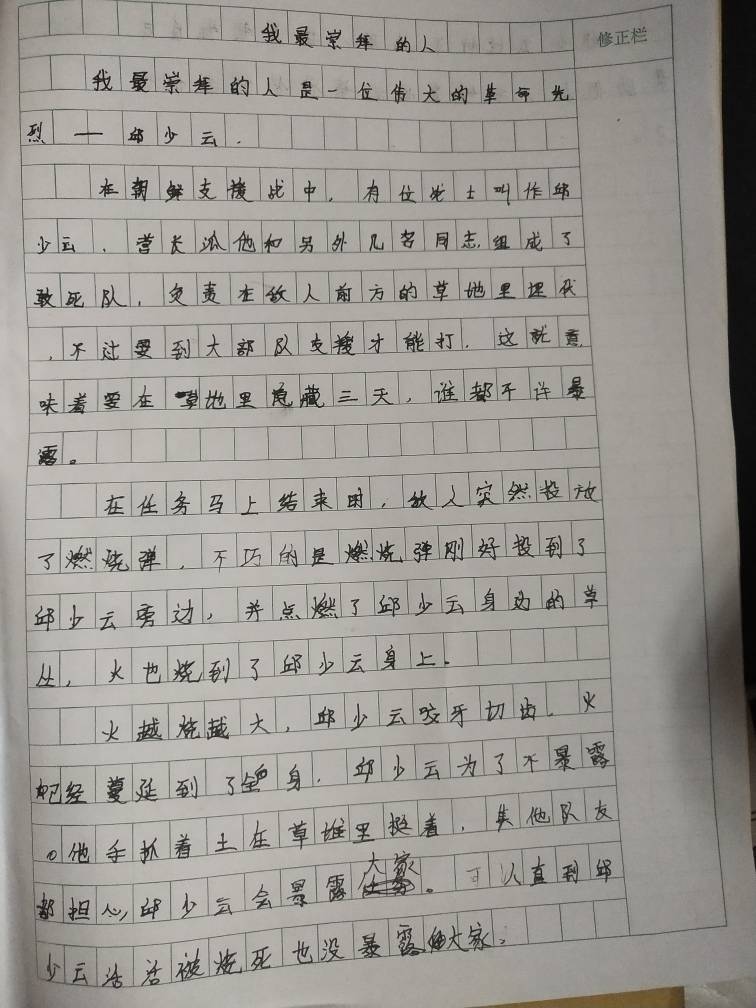 我最崇拜的人
修正栏
我最崇拜的人是一位伟大的革命先
烈——邱少云.
在朝鲜支援战中，有位战士叫作邱
少云，营长派他和另外几名同志组成了
敢死队，负责在敌人前方的草地里埋伏
，不过要到大部队支援才能打，这就意
味着要在草地里隐藏三天，谁都不许暴
露。
在任务马上结束时，敌人突然投放
了燃烧弹，不巧的是燃烧弹刚好投到了
邱少云旁边，并点燃了邱少云身边的草
丛，火也烧到了邱少云身上.
火越烧越大，邱少云咬牙切齿，火
已经蔓延到了全身，邱少云为了不暴露
。他手抓着土在草堆里挺着，其他队友
都担心邱少云会暴露大家。可人直到邱
少云活活被烧死也没暴露大家.